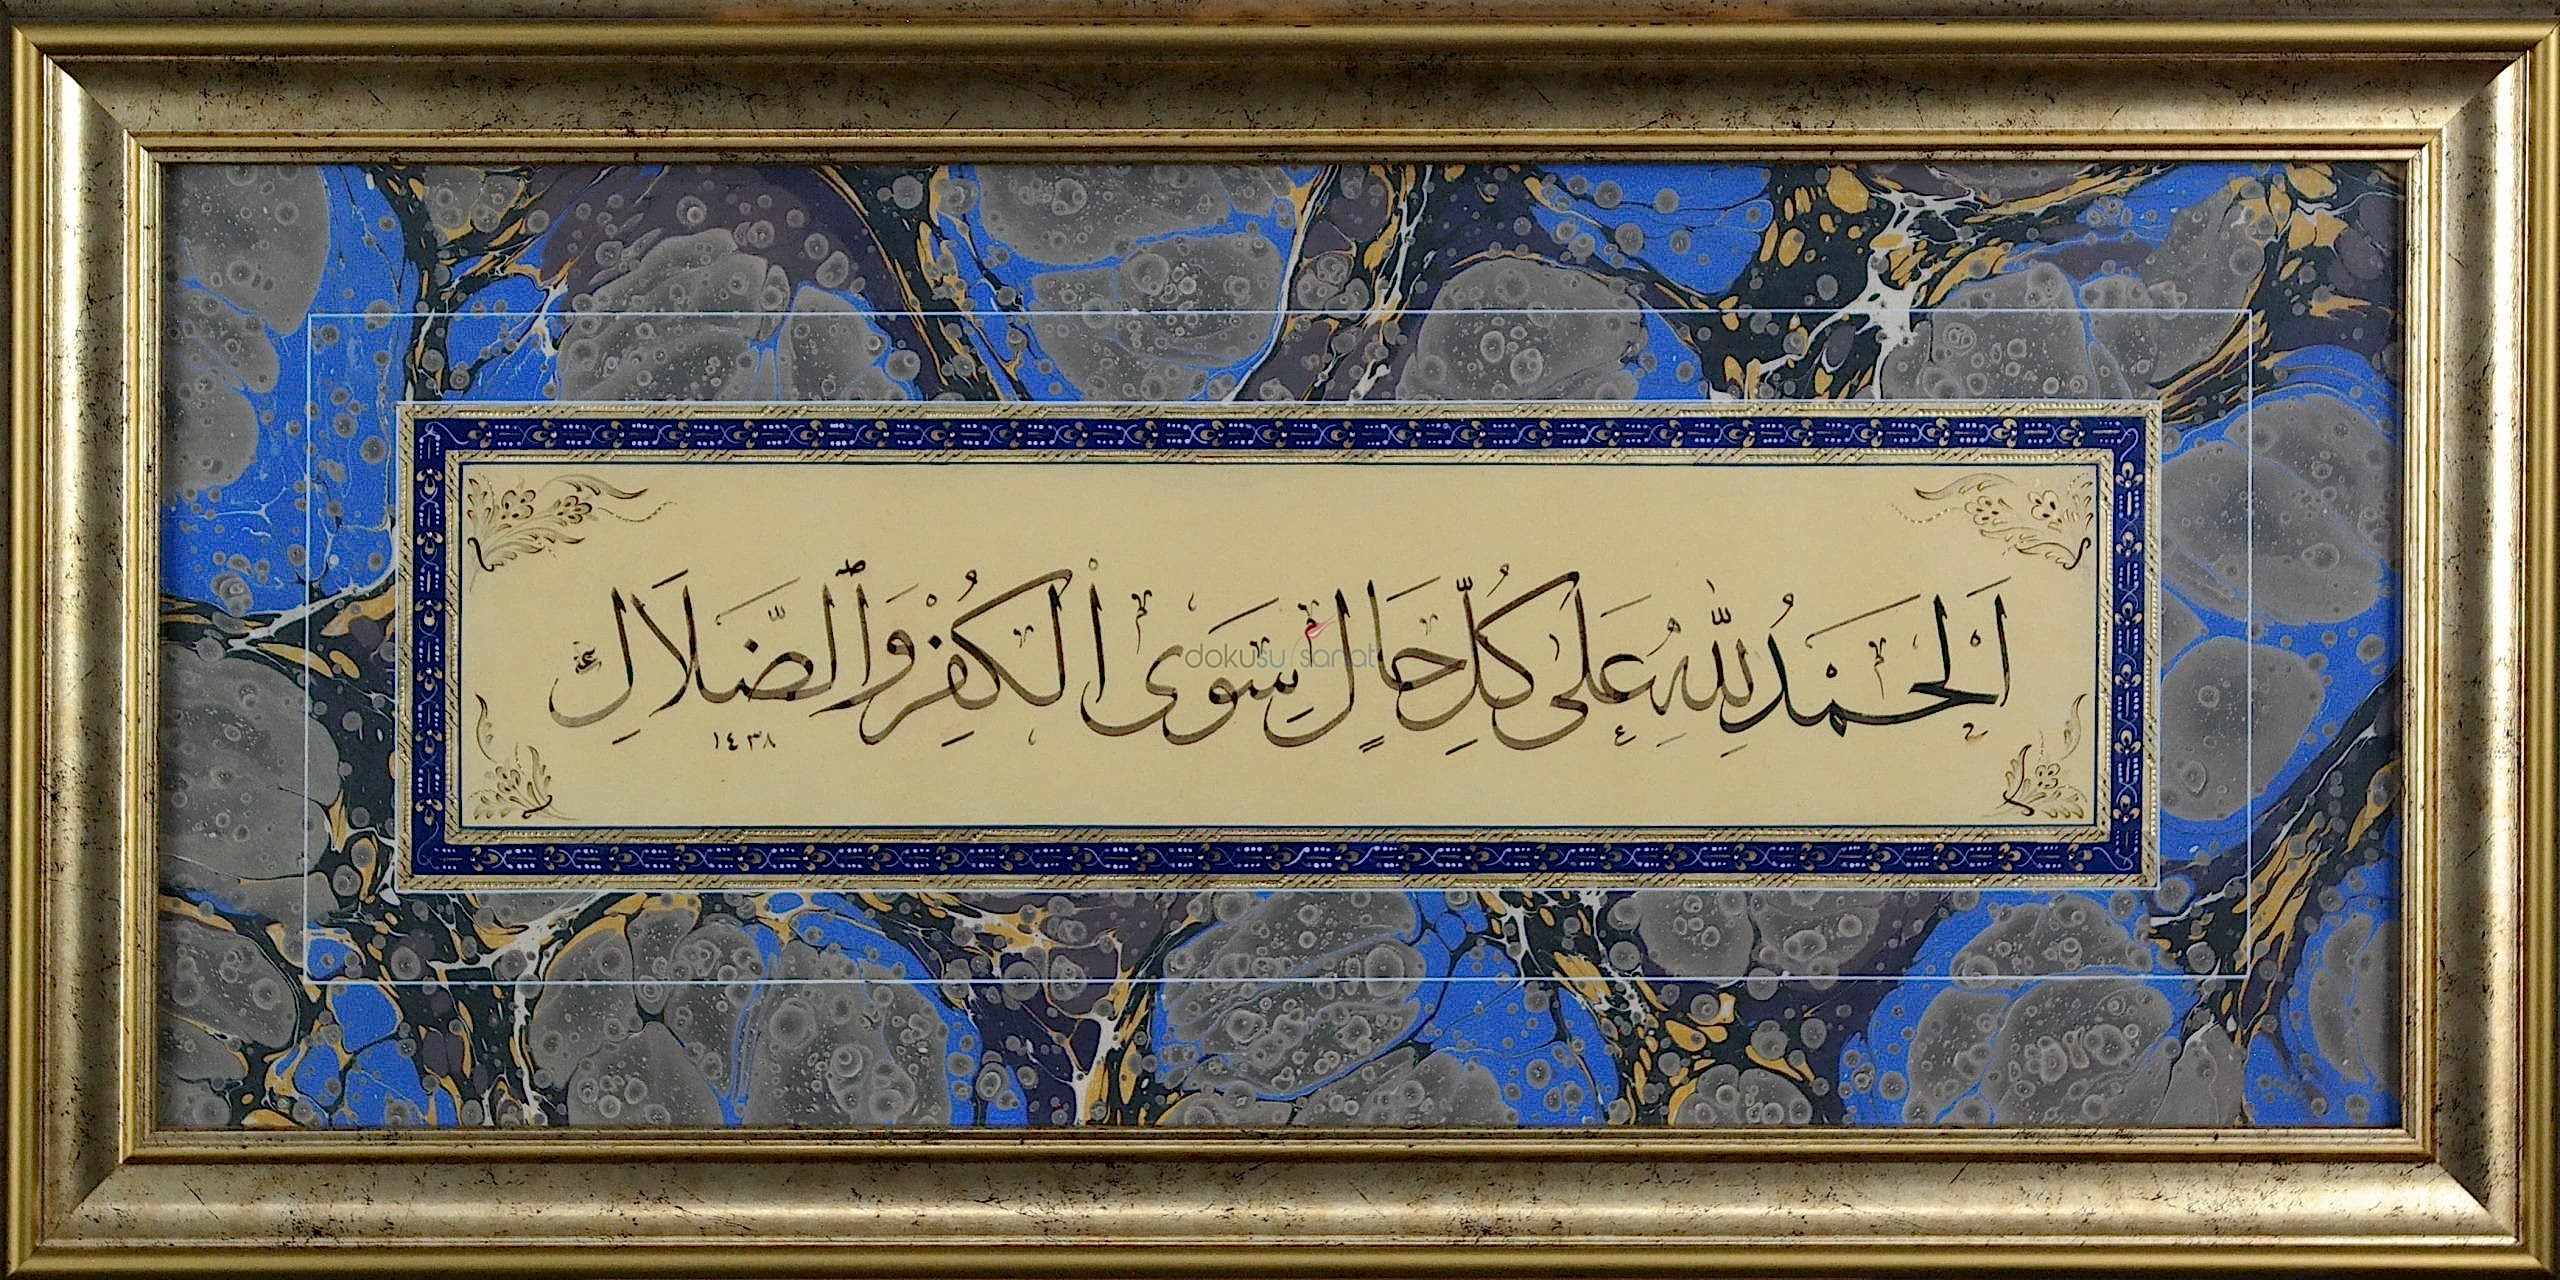 اَلْحَمْدُ لِلّٰهِ عَلَى كُلِّ حَالٍ سِوَى الْكُفْرِ وَالضَّلَالِ
١٤٣٨
dokusu sanat